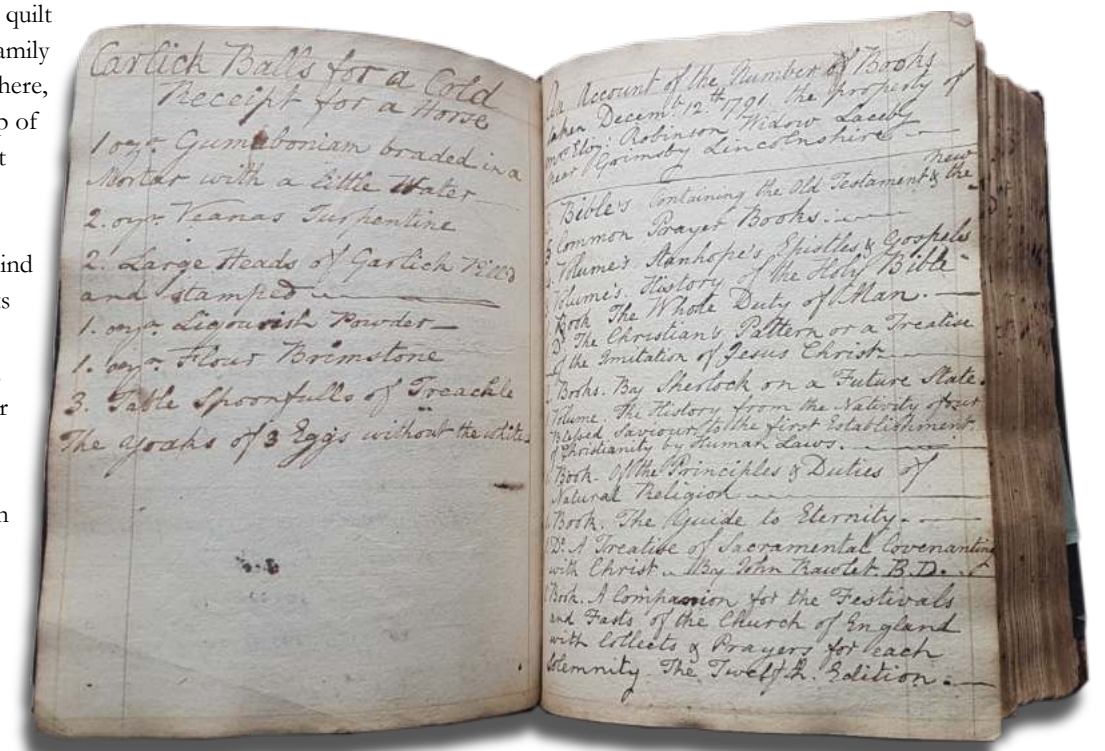 quilt
amily
here,
p of
t
ind
ts
r
n
Garlick Balls for a Cold
Receipt for a Horse
1 oz. Gumaboniam braded in a
Mortar with a little Water
2. ozs. Veanas Turpentine
2. Large Heads of Garlick
and stamped
1. oz. Liqourish Powder
1. oz. Flour Brimstone
3. Table Spoonfulls of Treachle
The yoaks of 3 Eggs without the white
An Account of the Number of Books
taken Decemb. 12th 1791. the property of
Mrs Eliz: Robinson Widow Laceby
near Grimsby Lincolnshire
Bible's Containing the Old Testament & the new
Common Prayer Books.
Volume's. Stanhope's Epistles & Gospels
Volume's. History of the Holy Bible
Book The Whole Duty of Man.
Do The Christian's Pattern or a Treatise
of the Imitation of Jesus Christ
Books. By Sherlock on a Future State.
Volume. The History from the Nativity of our
Blessed Saviour, to the first Establishment
of Christianity by Human Laws.
Book. Of the Principles & Duties of
Natural Religion
Book. The Guide to Eternity.
Do. A Treatise of Sacramental Covenanting
with Christ By John Rawlet. B.D.
Book. A Companion for the Festivals
and Fasts of the Church of England
with Collects & Prayers for each
Solemnity. The Twelfth. Edition.